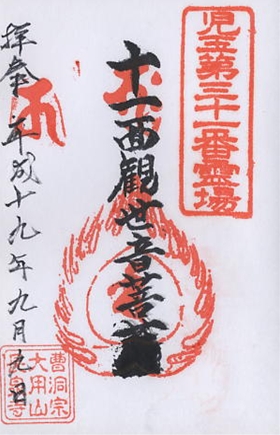 児玉第三十一番霊場
十一面觀世音菩薩
拝奉 平成十九年九月九日
曹洞宗
大用山